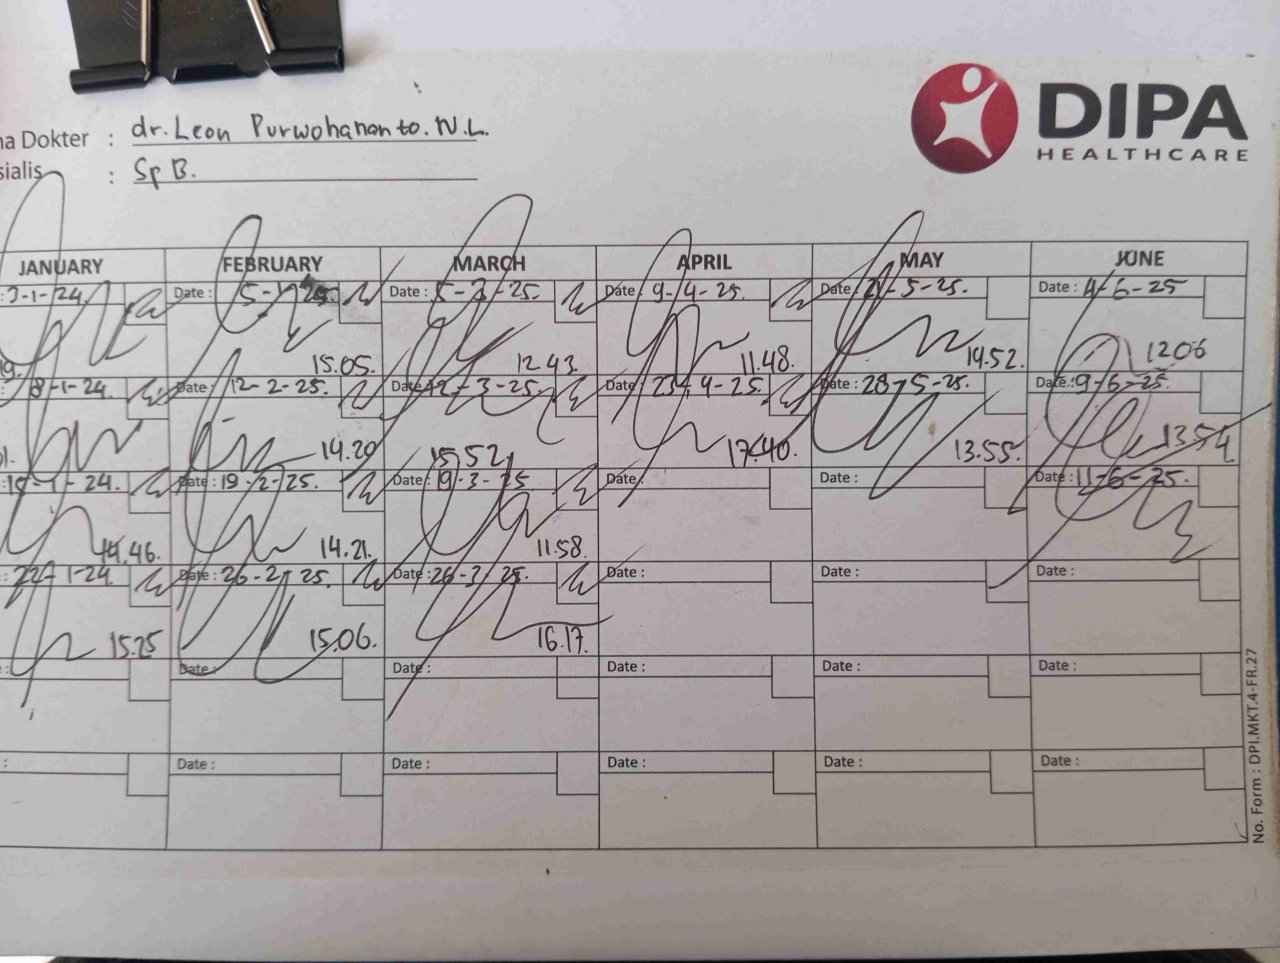 DIPA
HEALTHCARE
Dokter : dr. Leon Purwohananto. N.L.
: Sp B.
JANUARY FEBRUARY MARCH APRIL MAY JUNE
: 3-1-24. Date : 5- Date : 5-3-25. Date : 9-4-25. Date : -5-25. Date : 4-6-25
15.05. 12.43. 11.48. 14.52. 1206
8-1-24. Date : 12-2-25. Date : 12-3-25. Date : 23-4-25. Date : 28-5-25. Date : 9-6-25.
14.20 15.52 17.40. 13.55. 13.54
-1-24. Date : 19-2-25. Date : 19-3-25 Date : Date : Date : 11-6-25.
14.46. 14.21. 11.58.
: 22-1-24. Date : 26-2-25. Date : 26-3-25. Date : Date : Date :
15.25 15.06. 16.17.
: Date : Date : Date : Date : Date :
: Date : Date : Date : Date : Date :
No. Form : DPI.MKT.4-FR.27